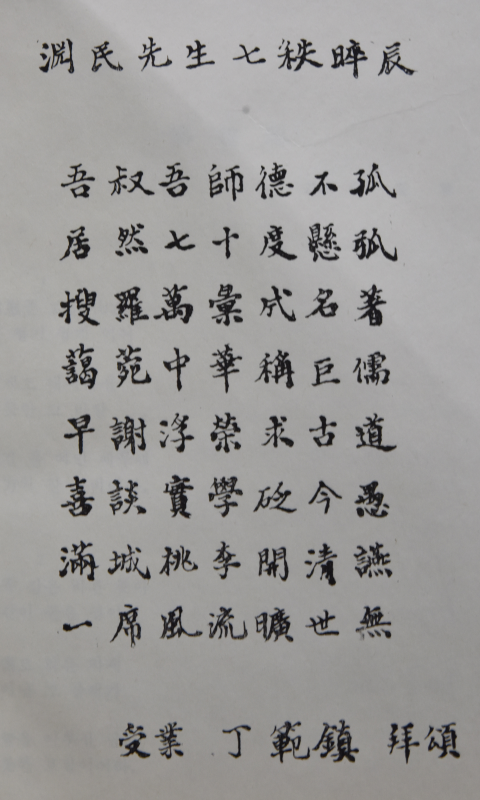 淵民先生七秩晬辰
吾叔吾師德不孤
居然七十度懸弧
搜羅萬彙成名著
藹菀中華稱巨儒
早謝浮榮求古道
喜談實學砭今愚
滿城桃李開清讌
一席風流曠世無
受業 丁範鎮 拜頌